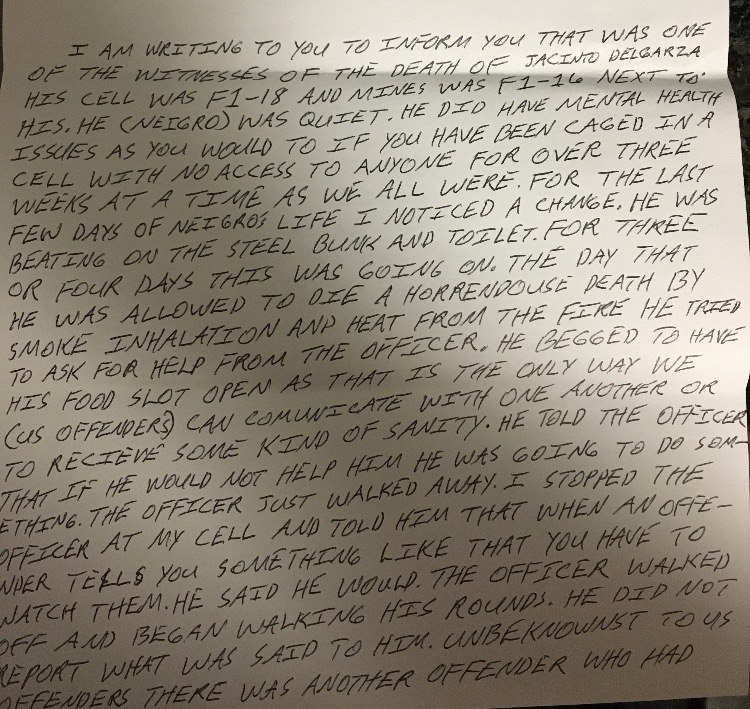 I AM WRITING TO YOU TO INFORM YOU THAT WAS ONE
OF THE WITNESSES OF THE DEATH OF JACINTO DELGARZA
HIS CELL WAS F1-18 AND MINES WAS F1-16 NEXT TO
HIS. HE (NEIGRO) WAS QUIET. HE DID HAVE MENTAL HEALTH
ISSUES AS YOU WOULD TO IF YOU HAVE BEEN CAGED IN A
CELL WITH NO ACCESS TO ANYONE FOR OVER THREE
WEEKS AT A TIME AS WE ALL WERE. FOR THE LAST
FEW DAYS OF NEIGROS LIFE I NOTICED A CHANGE. HE WAS
BEATING ON THE STEEL BUNK AND TOILET. FOR THREE
OR FOUR DAYS THIS WAS GOING ON. THE DAY THAT
HE WAS ALLOWED TO DIE A HORRENDOUSE DEATH BY
SMOKE INHALATION AND HEAT FROM THE FIRE HE TRIED
TO ASK FOR HELP FROM THE OFFICER. HE BEGGED TO HAVE
HIS FOOD SLOT OPEN AS THAT IS THE ONLY WAY WE
(US OFFENDERS) CAN COMUNICATE WITH ONE ANOTHER OR
TO RECIEVE SOME KIND OF SANITY. HE TOLD THE OFFICER
THAT IF HE WOULD NOT HELP HIM HE WAS GOING TO DO SOM-
ETHING. THE OFFICER JUST WALKED AWAY. I STOPPED THE
OFFICER AT MY CELL AND TOLD HIM THAT WHEN AN OFFE-
NDER TELLS YOU SOMETHING LIKE THAT YOU HAVE TO
WATCH THEM. HE SAID HE WOULD. THE OFFICER WALKED
OFF AND BEGAN WALKING HIS ROUNDS. HE DID NOT
REPORT WHAT WAS SAID TO HIM. UNBEKNOWNST TO US
OFFENDERS THERE WAS ANOTHER OFFENDER WHO HAD